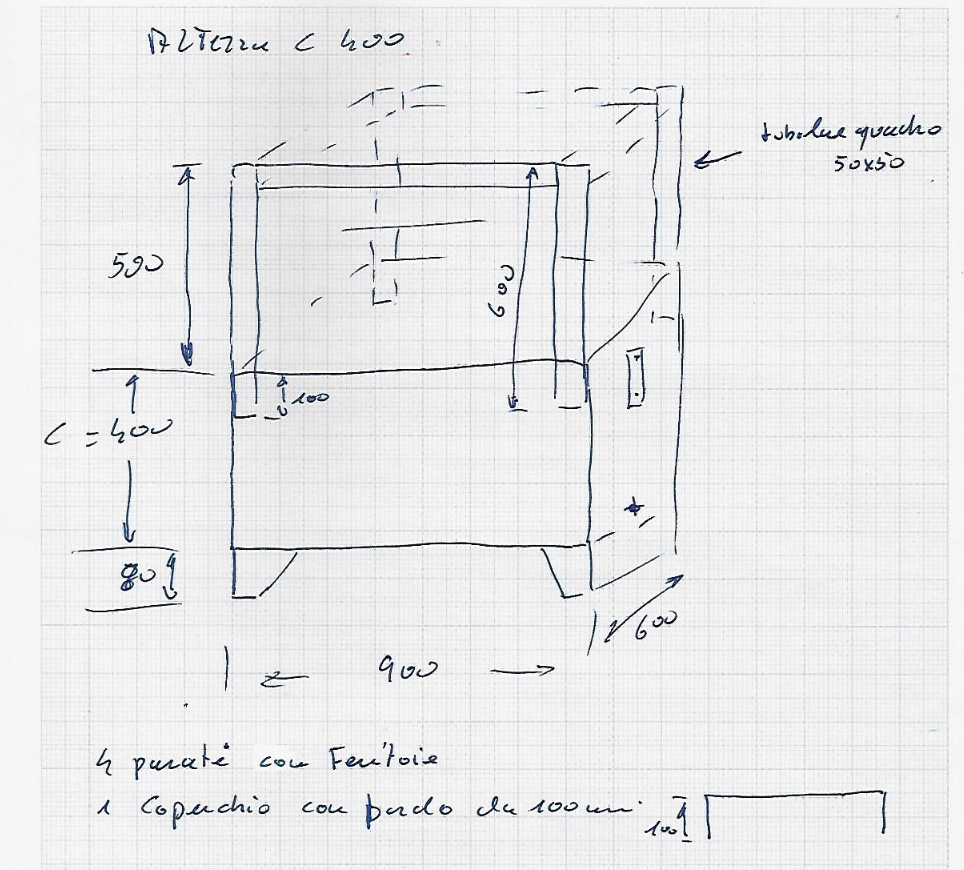 Altezza C 400
tubolare quadro
50x50
500
600
100
C = 400
80
600
900
4 paraté con Feritoie
1 Coperchio con bordo da 100 mm.
100